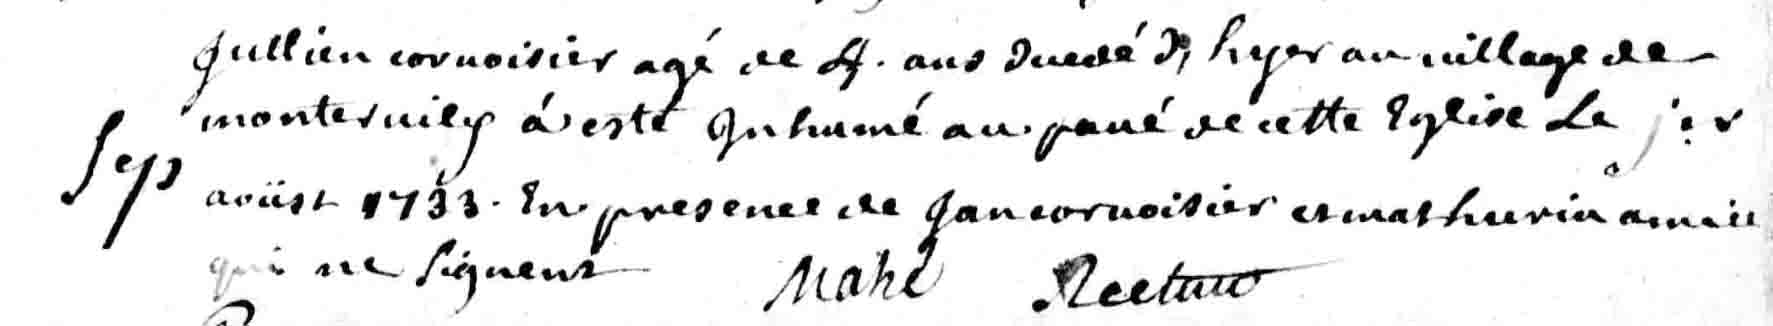 Jullien cornoisier agé de 4. ans decedé d'hyer au village de
montervily á esté Inhumé au pavé de cette Eglise Le jer
Sep
aoüst 1733. En presence de Jan cornoisier et mathurin
qui ne signent Mahé Recteur